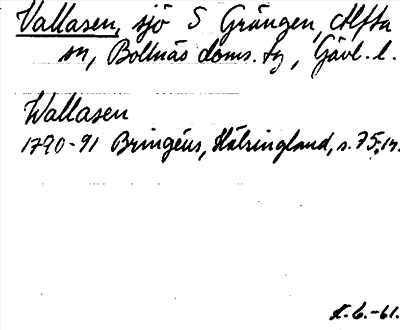 Vallasen, sjö S Grängen, Alfta
sn, Bollnäs doms. tg, Gävl. l.
Wallasen
1790-91 Bringéus, Hälsingland, s. 75,
K. G. -61.